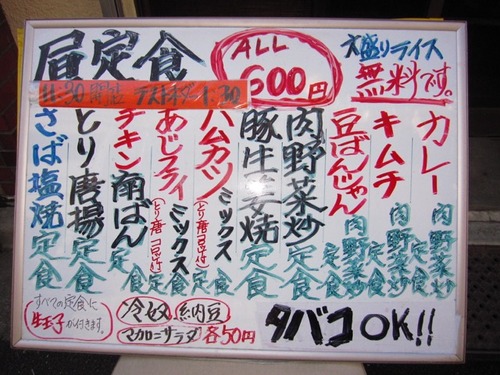 昼定食
ALL
600円
大盛りライス
無料です。
11:30開店 ラストオーダー1:30
カレー肉野菜炒定食
キムチ肉野菜炒定食
豆ばんじゃん肉野菜炒定食
肉野菜炒定食
豚生姜焼定食
ハムカツミックス定食
(とり唐 コロ付)
あじフライミックス定食
(とり唐 コロ付)
チキン南ばん定食
とり唐揚定食
さば塩焼定食
すべての定食に
生玉子が付きます。
冷奴 納豆
マカロニサラダ 各50円
タバコOK!!